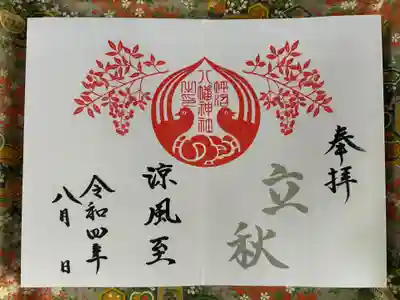 奉拝
立秋
八幡神社
之印
涼風至
令和四年
八月 日